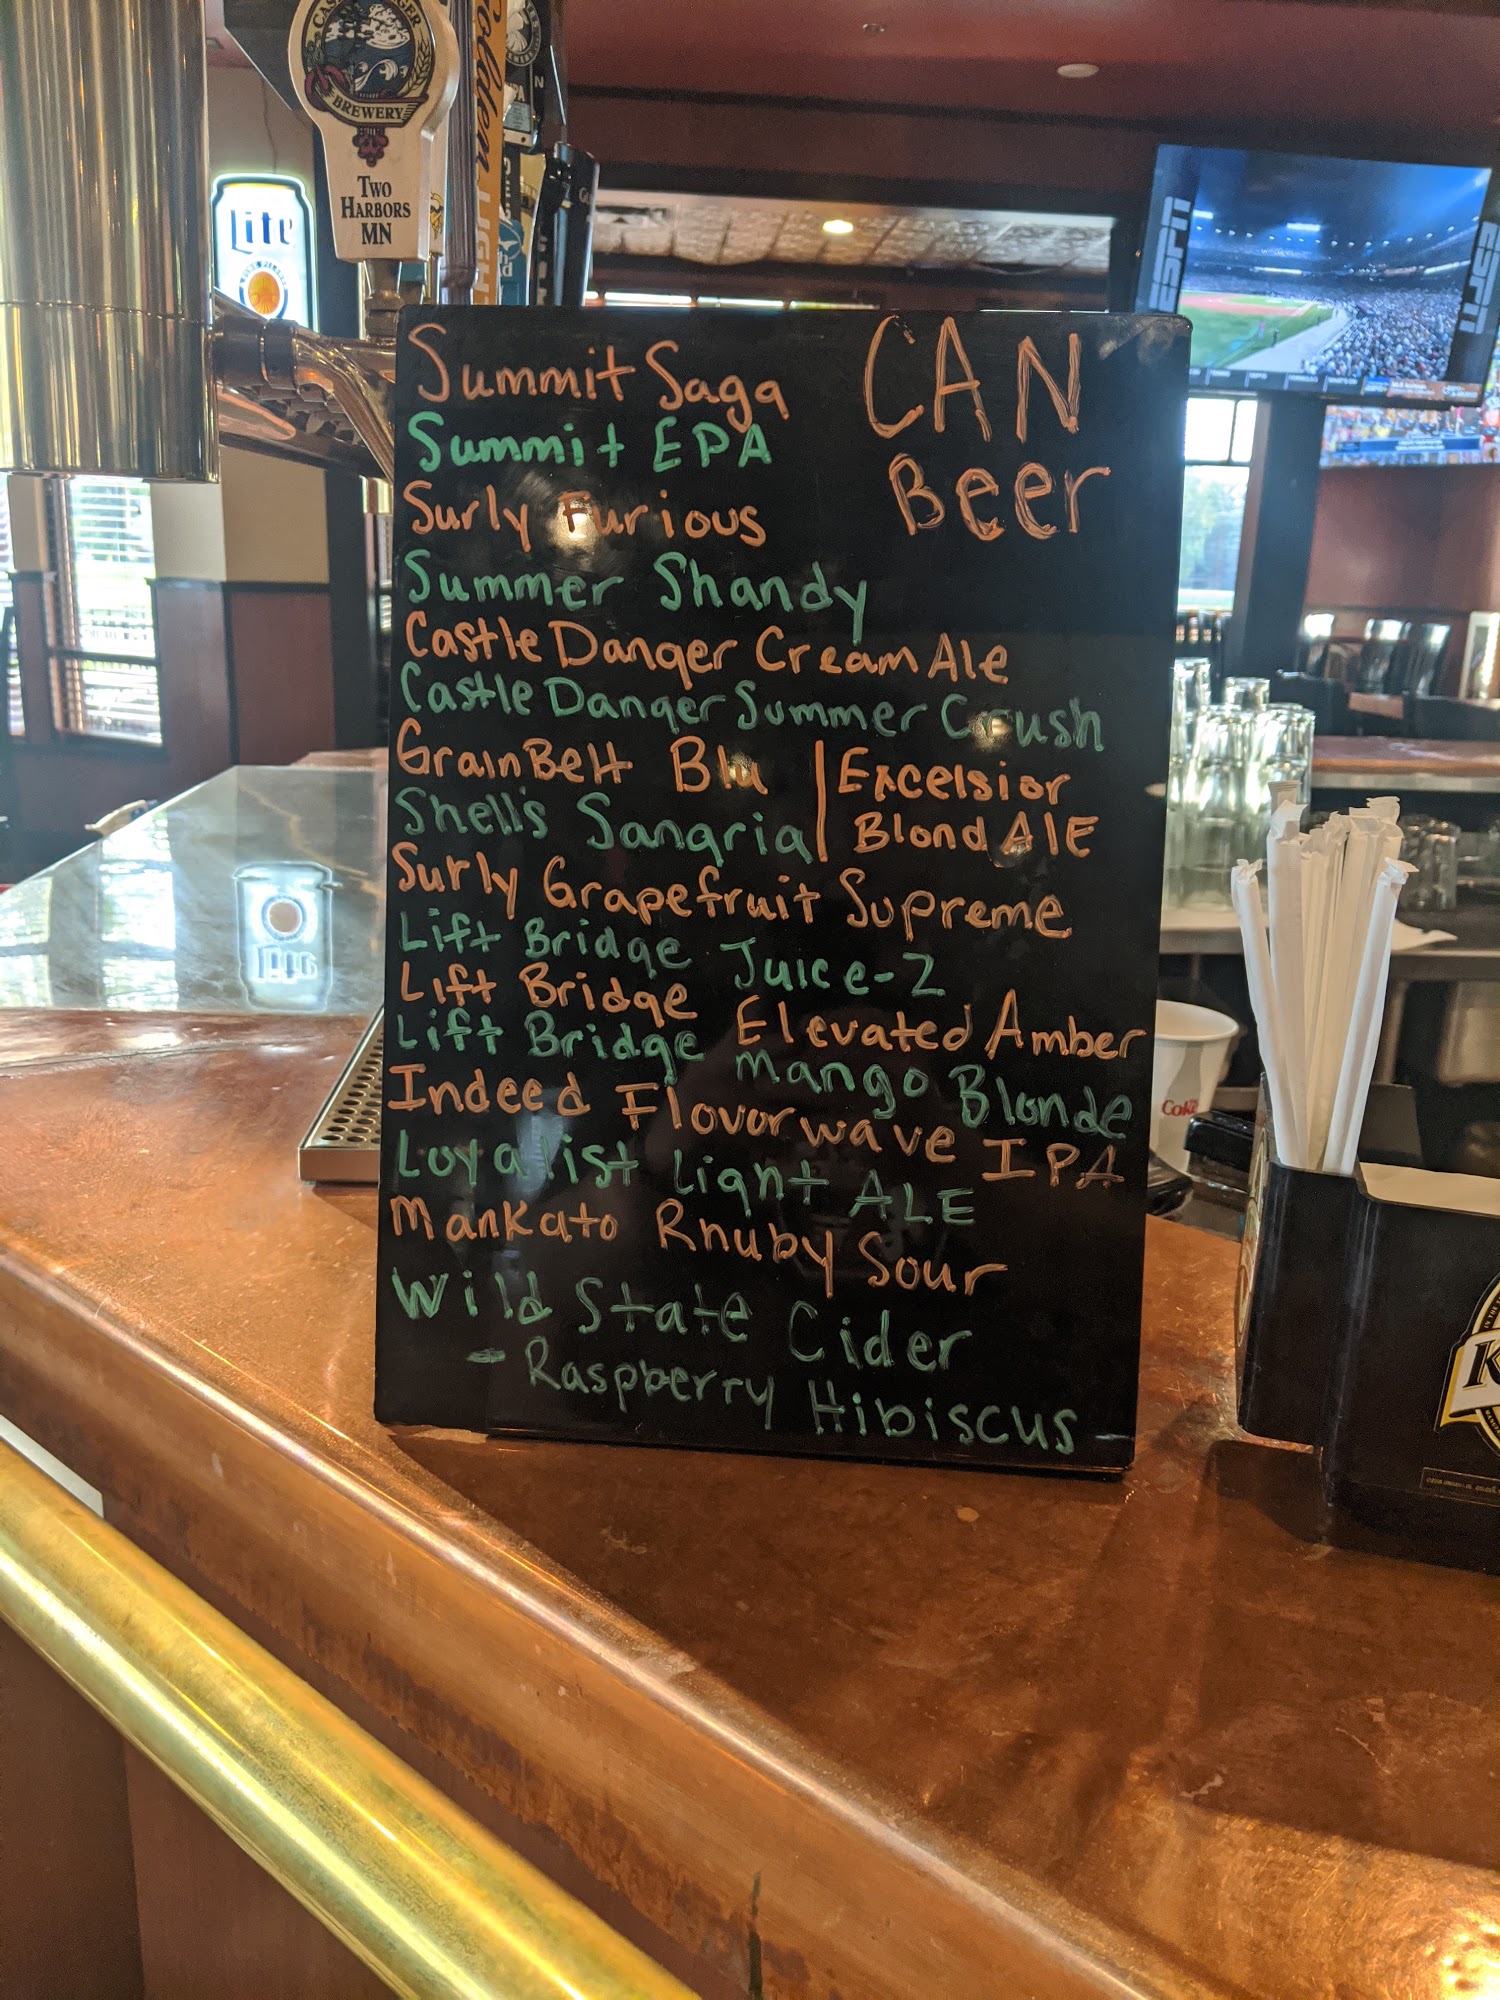 BREWERY
TWO
HARBORS
MN
Golden
LIGHT
Lite
ESPN
ESPN
CAN
Beer
Summit Saga
Summit EPA
Surly Furious
Summer Shandy
Castle Danger Cream Ale
Castle Danger Summer Crush
GrainBelt Blu | Excelsior
Shell's Sangria | Blond ALE
Surly Grapefruit Supreme
Lift Bridge Juice-Z
Lift Bridge Elevated Amber
Lift Bridge Mango Blonde
Indeed Flovorwave IPA
Loyalist Light ALE
Mankato Rhuby Sour
Wild State Cider
- Raspberry Hibiscus
Coke